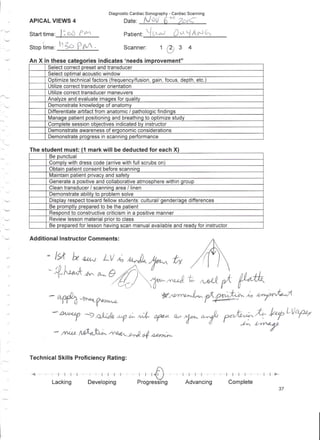 Diagnostic Cardiac Sonography - Cardiac Scanning
APICAL VIEWS 4 Date: Nov 6th 2015
Start time: 1:00 PM Patient:
Stop time: 1:30 PM. Scanner: 1 2 3 4
An X in these categories indicates "needs improvement"
Select correct preset and transducer
Select optimal acoustic window
Optimize technical factors (frequency/fusion, gain, focus, depth, etc.)
Utilize correct transducer orientation
Utilize correct transducer maneuvers
Analyze and evaluate images for quality
Demonstrate knowledge of anatomy
Differentiate artifact from anatomic / pathologic findings
Manage patient positioning and breathing to optimize study
Complete session objectives indicated by instructor
Demonstrate awareness of ergonomic considerations
Demonstrate progress in scanning performance
The student must: (1 mark will be deducted for each X)
Be punctual
Comply with dress code (arrive with full scrubs on)
Obtain patient consent before scanning
Maintain patient privacy and safety
Generate a positive and collaborative atmosphere within group
Clean transducer / scanning area / linen
Demonstrate ability to problem solve
Display respect toward fellow students: cultural/ gender/age differences
Be promptly prepared to be the patient
Respond to constructive criticism in a positive manner
Review lesson material prior to class
Be prepared for lesson having scan manual available and ready for instructor
Additional Instructor Comments:
- 1st be sure LV is
- if heart on an
you need to roll pt flatter
- apply more pressure
is important
- slide up
in image
Technical Skills Proficiency Rating:
Lacking Developing Progressing Advancing Complete
37